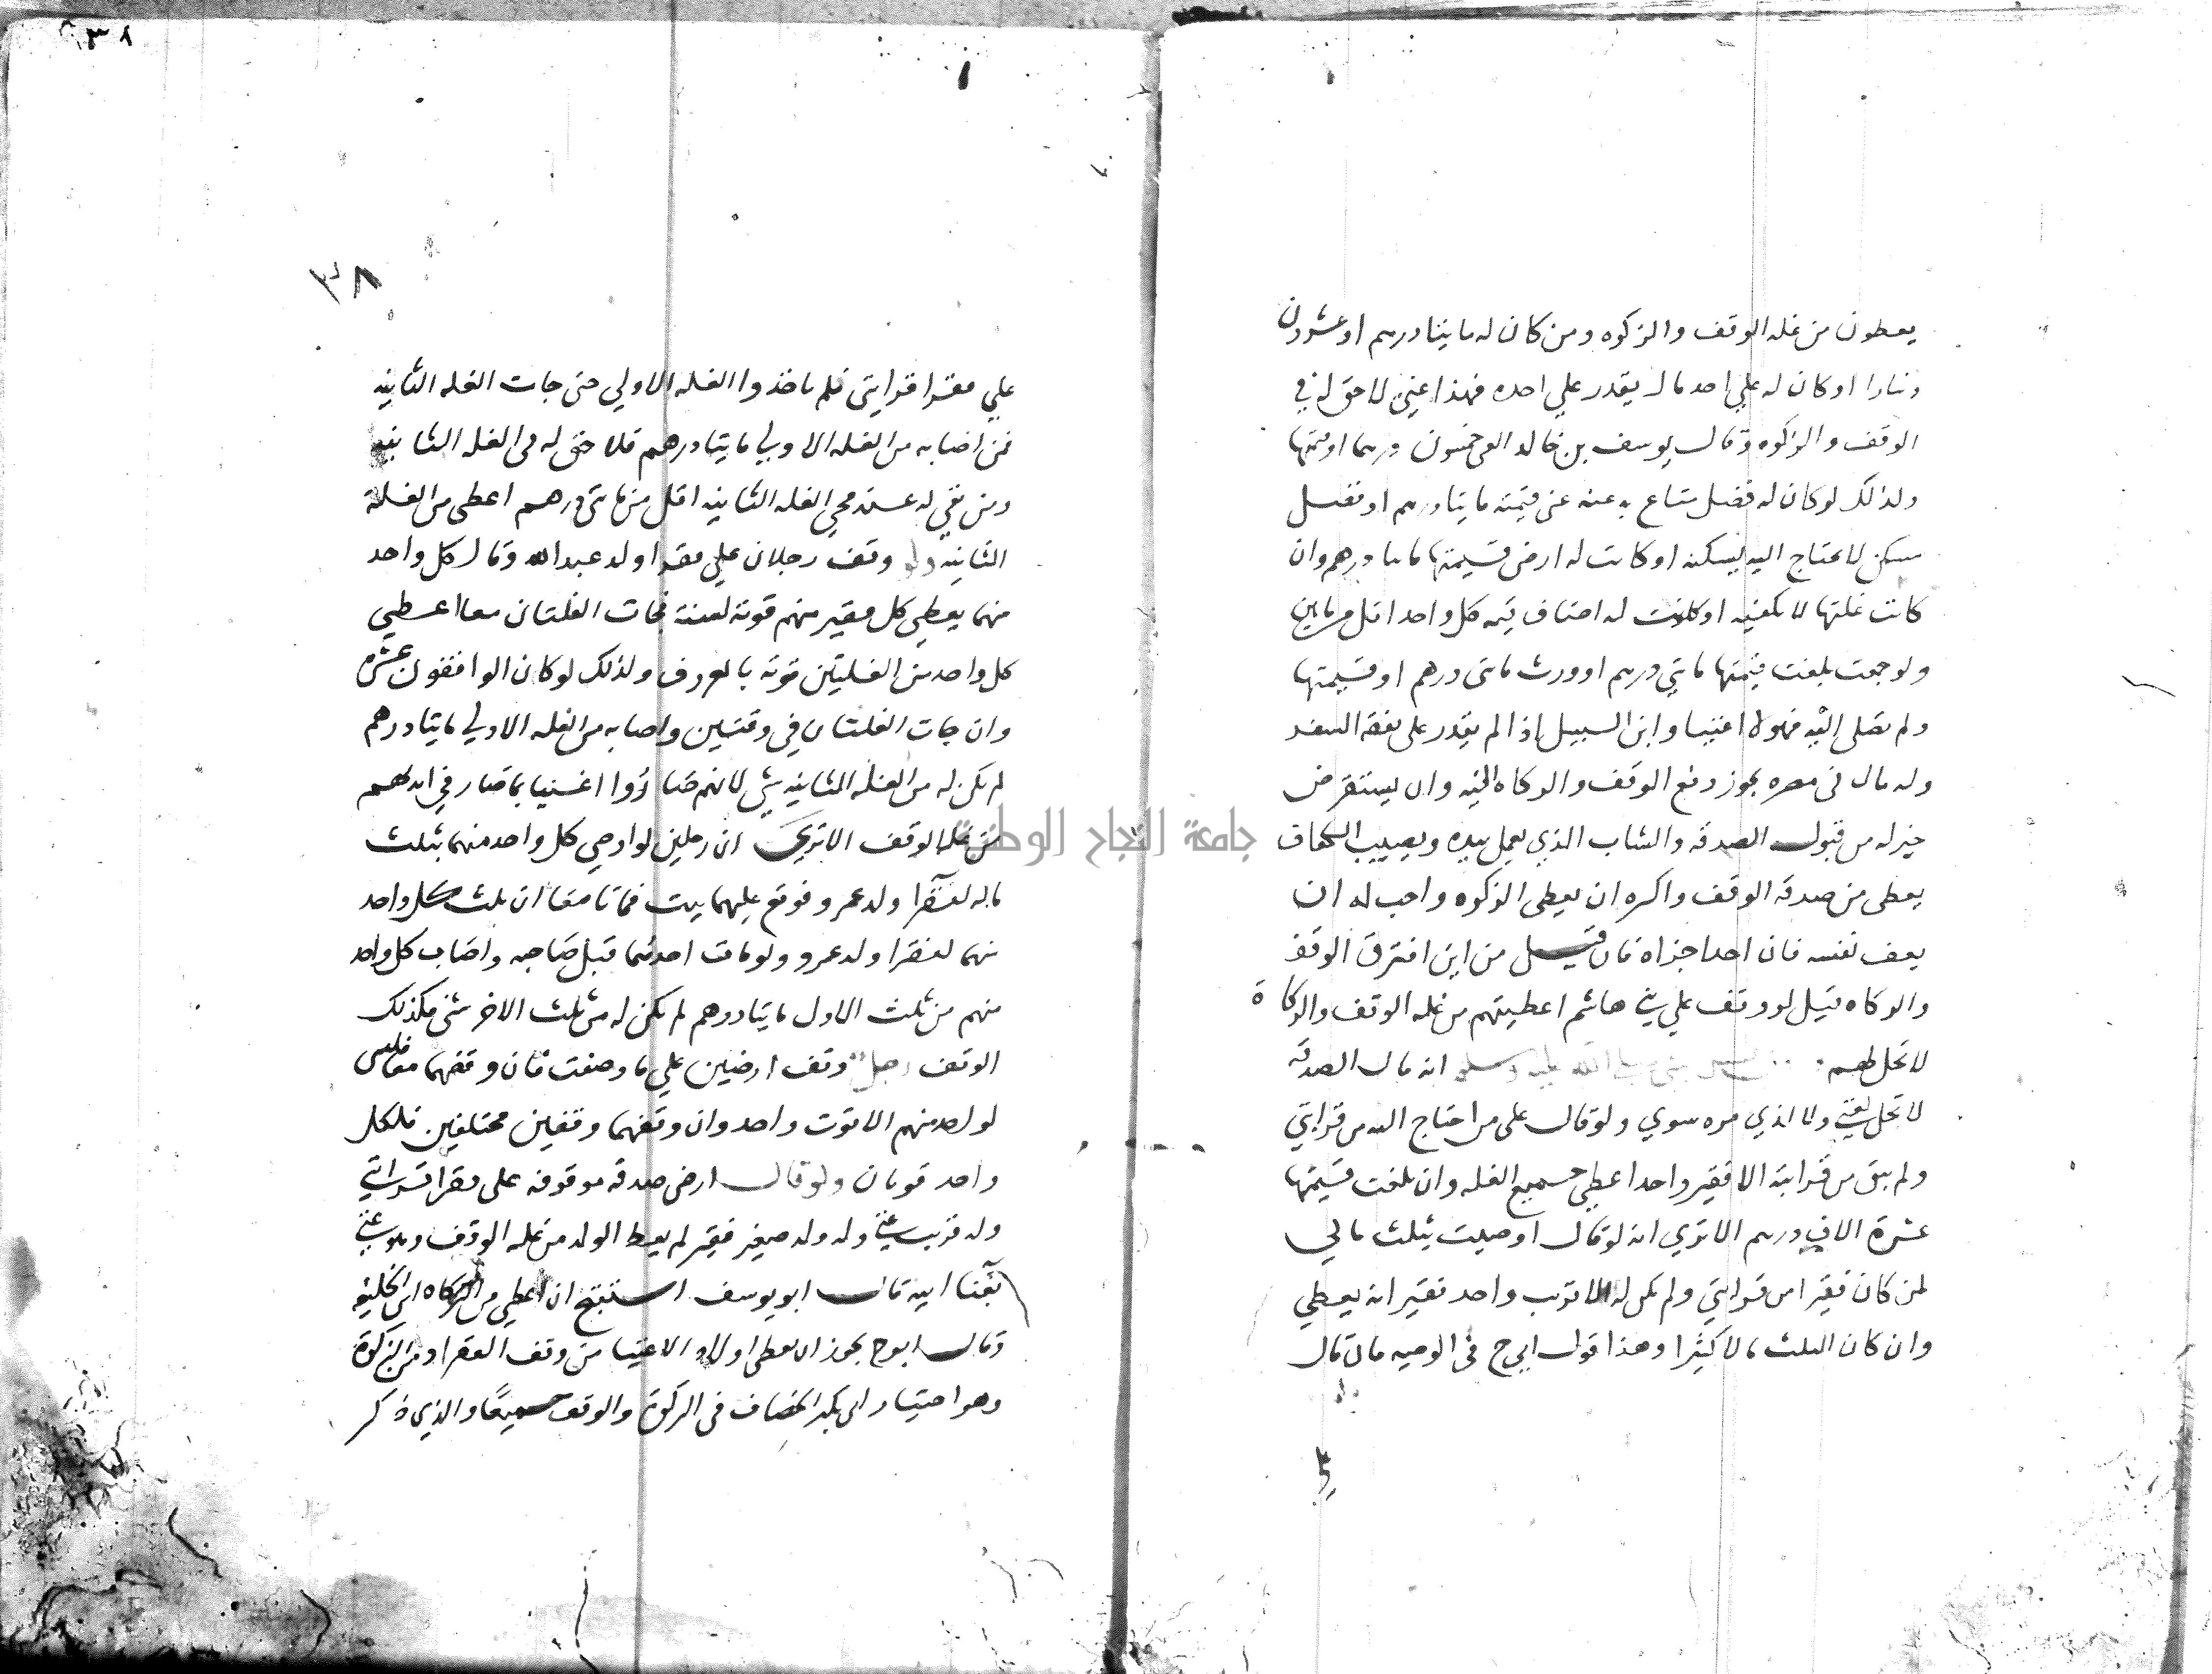 يعطون من غله الوقف والزكوه ومن كان له مايتا درهم او عشرون
دنارا او كان له علي احد مال يقدر علي اخده فهذا غني لا حق له في
الوقف والزكوه وقال يوسف بن خالد العي خمسون درهما او قيمتها
ولذلك لو كان له فضل متاع به عنه غنى قيمته مايتا درهم او فضل
مسكن لا يحتاج اليه ليسكنه او كانت له ارض قسيمتها مايتا درهم وان
كانت غلتها لا تكفيه او كانت له اصناف قيمه كل واحد اقل من مايتين
ولو جمعت بلغت قيمتها مايتي درهم او ورث مايتى درهم او قسيمتها
ولم تصل اليه فهولا اغنيا وابن السبيل اذا لم يقدر على نفقة السفر
وله مال فى مصره يجوز دفع الوقف والزكاه اليه وان يستقرض
خير له من قبول الصدقه والشاب الذي يعمل بيده ويصيب الكفاف
يعطى من صدقه الوقف واكره ان يعطى الزكوه واحب له ان
يعف نفسه فان اخدا جزاه فان قيل من اين افترق الوقف
والزكاه قيل لو وقف علي بني هاشم اعطيتهم من غله الوقف والزكاة
لا تحل لهم صلى الله عليه وسلم انه قال الصدقه
لا تحل لغني ولا لذي مره سوي ولو قال على من احتاج اليه من قرابتي
ولم يبق من قرابته الا فقير واحد اعطي جميع الغله وان بلغت قسيمتها
عشرة الاف درهم الا تري انه لو قال اوصيت بثلث مالي
لمن كان فقيرا من قرابتي ولم يكن له الا قريب واحد فقير انه يعطي
وان كان الثلث مالا كثيرا وهذا قول ابي ح فى الوصيه فان قال
٣٨
علي فقرا قرابتى فلم ياخذوا الغله الاولي حتى جات الغله الثانيه
فمن اصابه من الغله الاولي مايتا درهم فلا حق له فى الغله الثانيه
ومن بقي له عند مجي الغله الثانيه اقل من مايتى درهم اعطى من الغلة
الثانيه ولو وقف رجلان علي فقرا ولد عبد الله وقال كل واحد
منهما يعطي كل فقير منهم قوته لسنة فجات الغلتان معا اعطي
كل واحد من الغلتين قوته بالمعروف ولذلك لو كان الواقفون عشره
وان جات الغلتان في وقتين واصابه من الغله الاولي مايتا درهم
لم يكن له من الغله الثانيه شي لانهم صاروا اغنيا بما صار في ايديهم
من غله الوقف الا تري ان رجلين لو اوصي كل واحد منهما بثلث
ماله لفقرا ولد عمرو فوقع عليهما بيت فماتا معا ان ثلث كل واحد
منهما لفقرا ولد عمرو ولو مات احدهما قبل صاحبه واصاب كل واحد
منهم من ثلث الاول مايتا درهم لم يكن له من ثلث الاخر شى فكذلك
الوقف رجل وقف ارضين علي ما وصفت فان وقفهما معا فليس
لواحد منهم الا قوت واحد وان وقفهما وقفين مختلفين فلكل
واحد قوتان ولو قال ارض صدقه موقوفه على فقرا قرابتي
وله قريب غني وله ولد صغير فقير لم يعط الولد من غله الوقف وهو غني
بغنا ابيه قال ابو يوسف استقبح ان اعطي من الزكاه ابن الخليفه
وقال ابو ح يجوز ان يعطى اولاد الاغنيا من وقف الفقرا ومن الزكوة
وهو اختيار ابى بكر الخصاف فى الزكوة والوقف جميعًا والذي ذكر
جامعة النجاح الوطنية